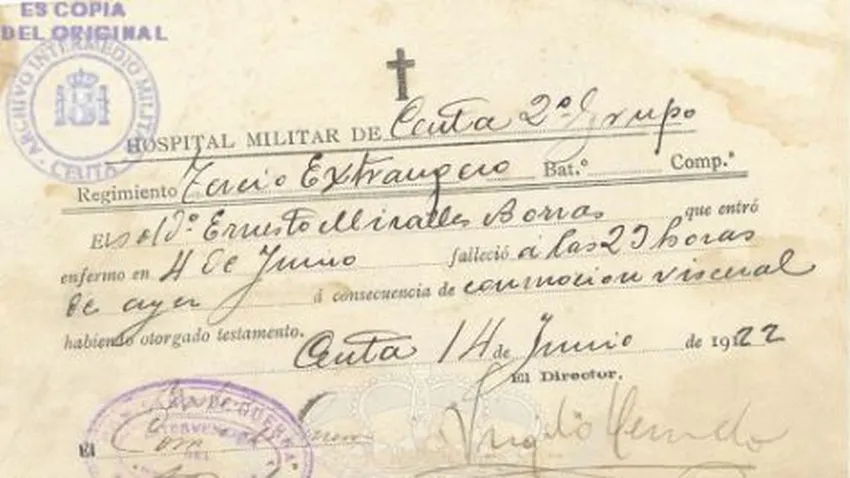 ES COPIA
DEL ORIGINAL
ARCHIVO INTERMEDIO MILITAR
CEUTA
HOSPITAL MILITAR DE Ceuta 2º Grupo
Regimiento Tercio Extrangero Bat.º Comp.ª
El sold.º Ernesto Miralles Borras que entró
enfermo en 4 de Junio falleció á las 23 horas
de ayer á consecuencia de conmocion visceral
habiendo otorgado testamento.
Ceuta 14 de Junio de 1922
El Director,
El